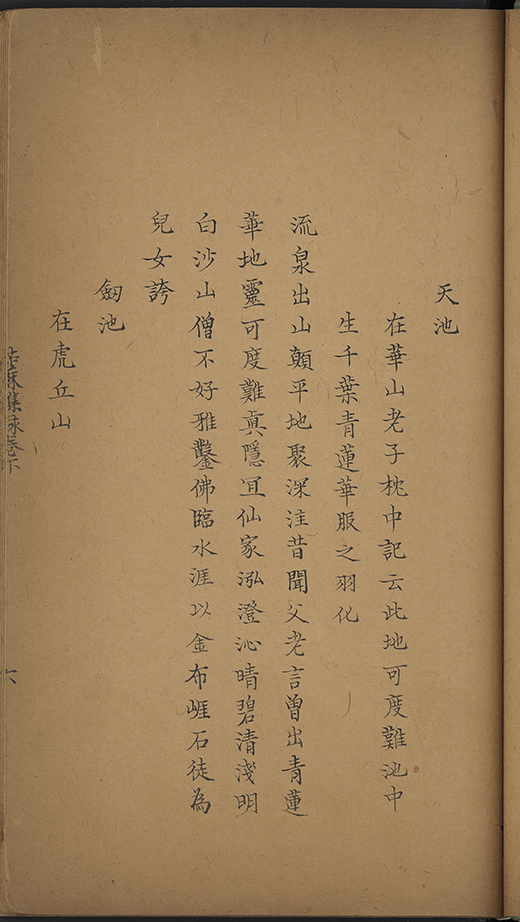 天池
在華山老子枕中記云此地可度難池中
生千葉青蓮華服之羽化
流泉出山顛平地聚深洼昔聞父老言曾出青蓮
華地靈可度難真隱宜仙家泓澄沁晴碧清淺明
白沙山僧不好雅鑿佛臨水涯以金布崕石徒為
兒女誇
劒池
在虎丘山
姑蘇集詠卷下
六